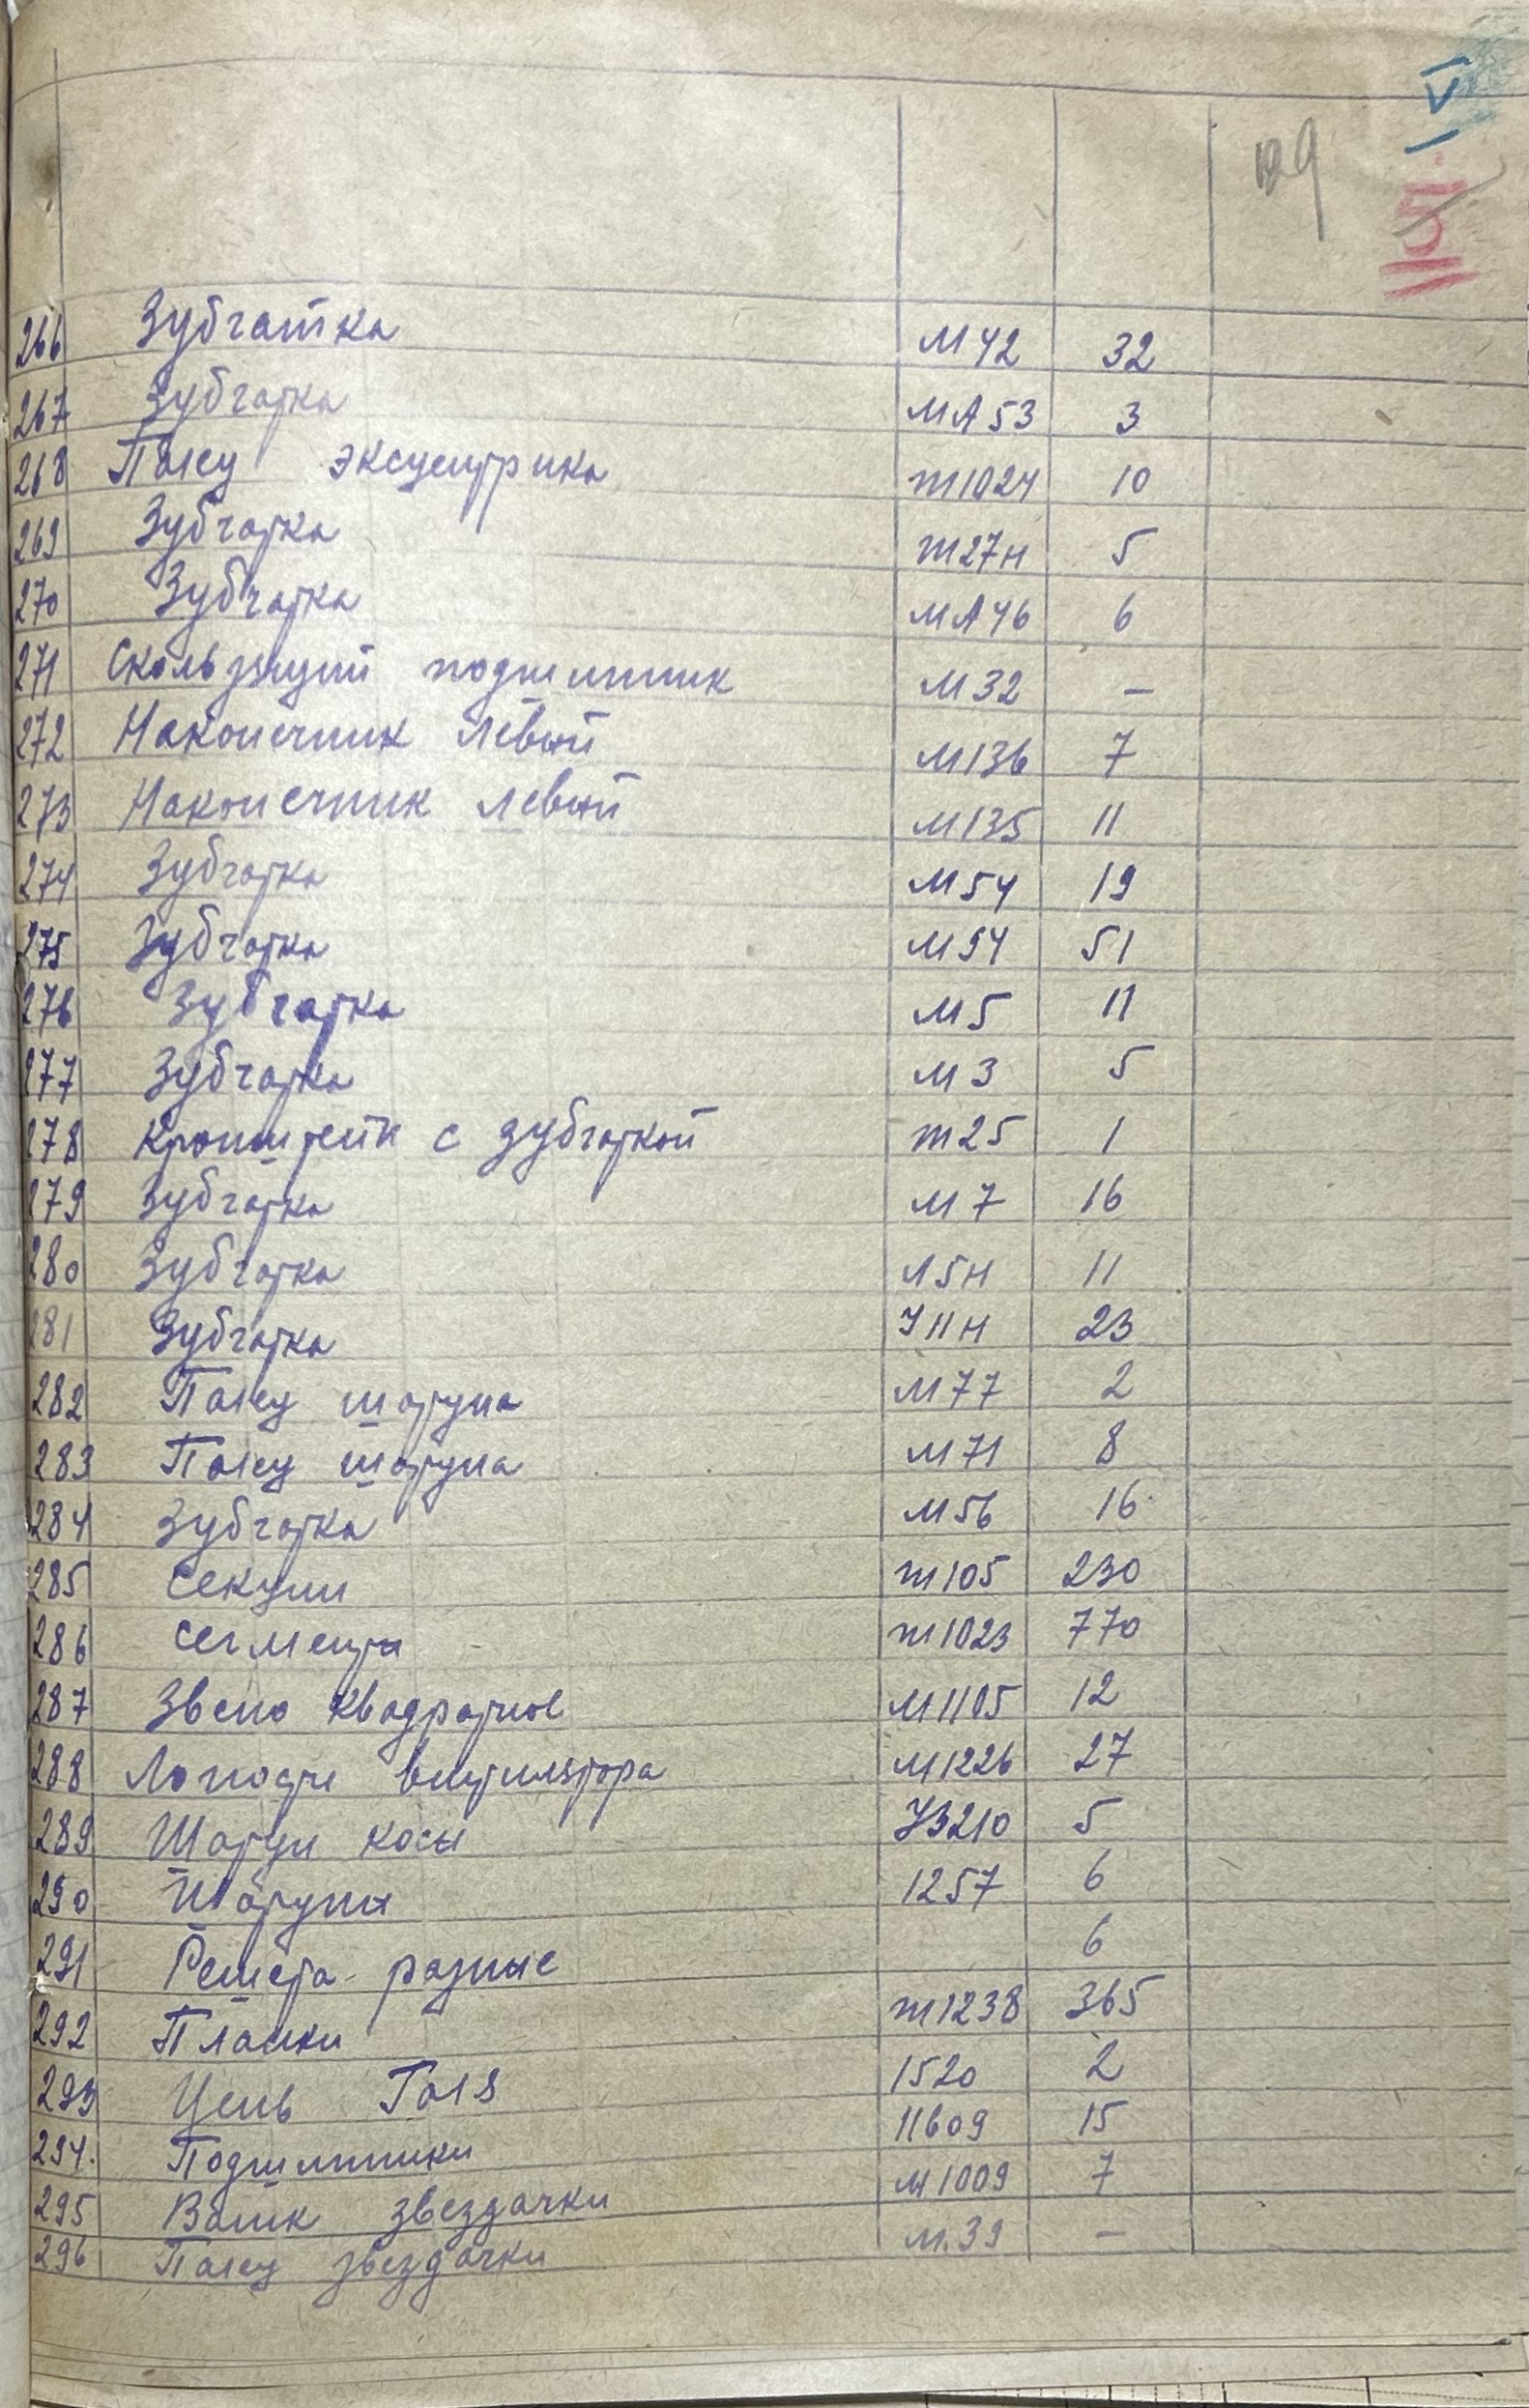 129
151
266 Зубчатка М42 32
267 Зубчатка МА53 3
268 Палец эксцентрика т1024 10
269 Зубчатка т27н 5
270 Зубчатка МА46 6
271 Скользящий подшипник М32 —
272 Наконечник левый М136 7
273 Наконечник левый М135 11
274 Зубчатка М54 19
275 Зубчатка М94 51
276 Зубчатка М5 11
277 Зубчатка М3 5
278 Кронштейн с зубчаткой т25 1
279 Зубчатка М7 16
280 Зубчатка Л5н 11
281 Зубчатка У11н 23
282 Палец шатуна М77 2
283 Палец шатуна М71 8
284 Зубчатка М56 16
285 Секции т105 230
286 Сегменты т1023 770
287 Звено квадратное М1105 12
288 Лопасти вентилятора М1226 27
289 Шатун косы УЗ210 5
290 Шатуны 1257 6
291 Решета разные 6
292 Планки т1238 365
293 Цепь Галя 1520 2
294. Подшипники 11609 15
295 Валик звездочки М1009 7
296 Палец звездочки М.39 —